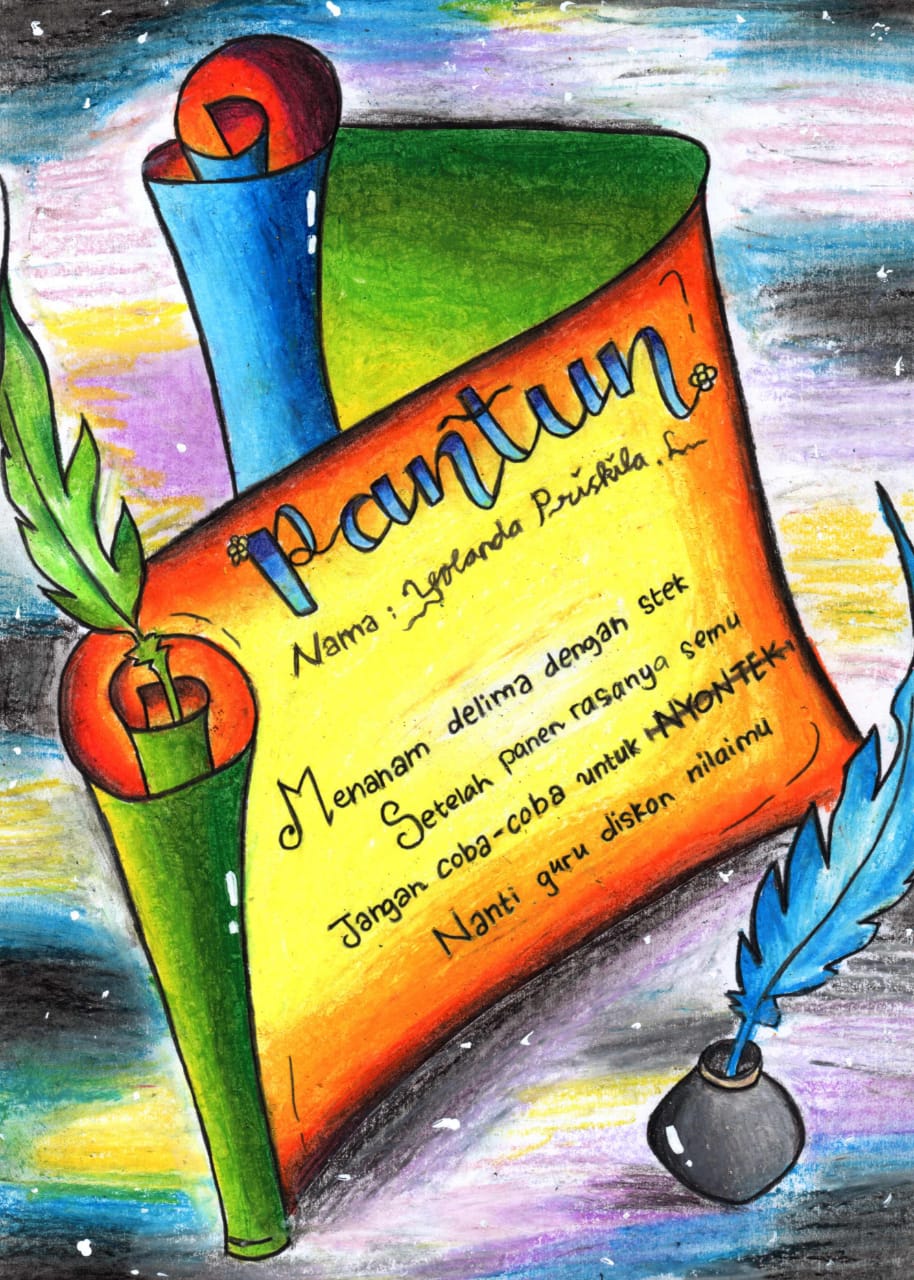 Pantun
Nama : Yolanda Priskila .
Menanam delima dengan stek
Setelah panen rasanya semu
Jangan coba-coba untuk NYONTEK
Nanti guru diskon nilaimu